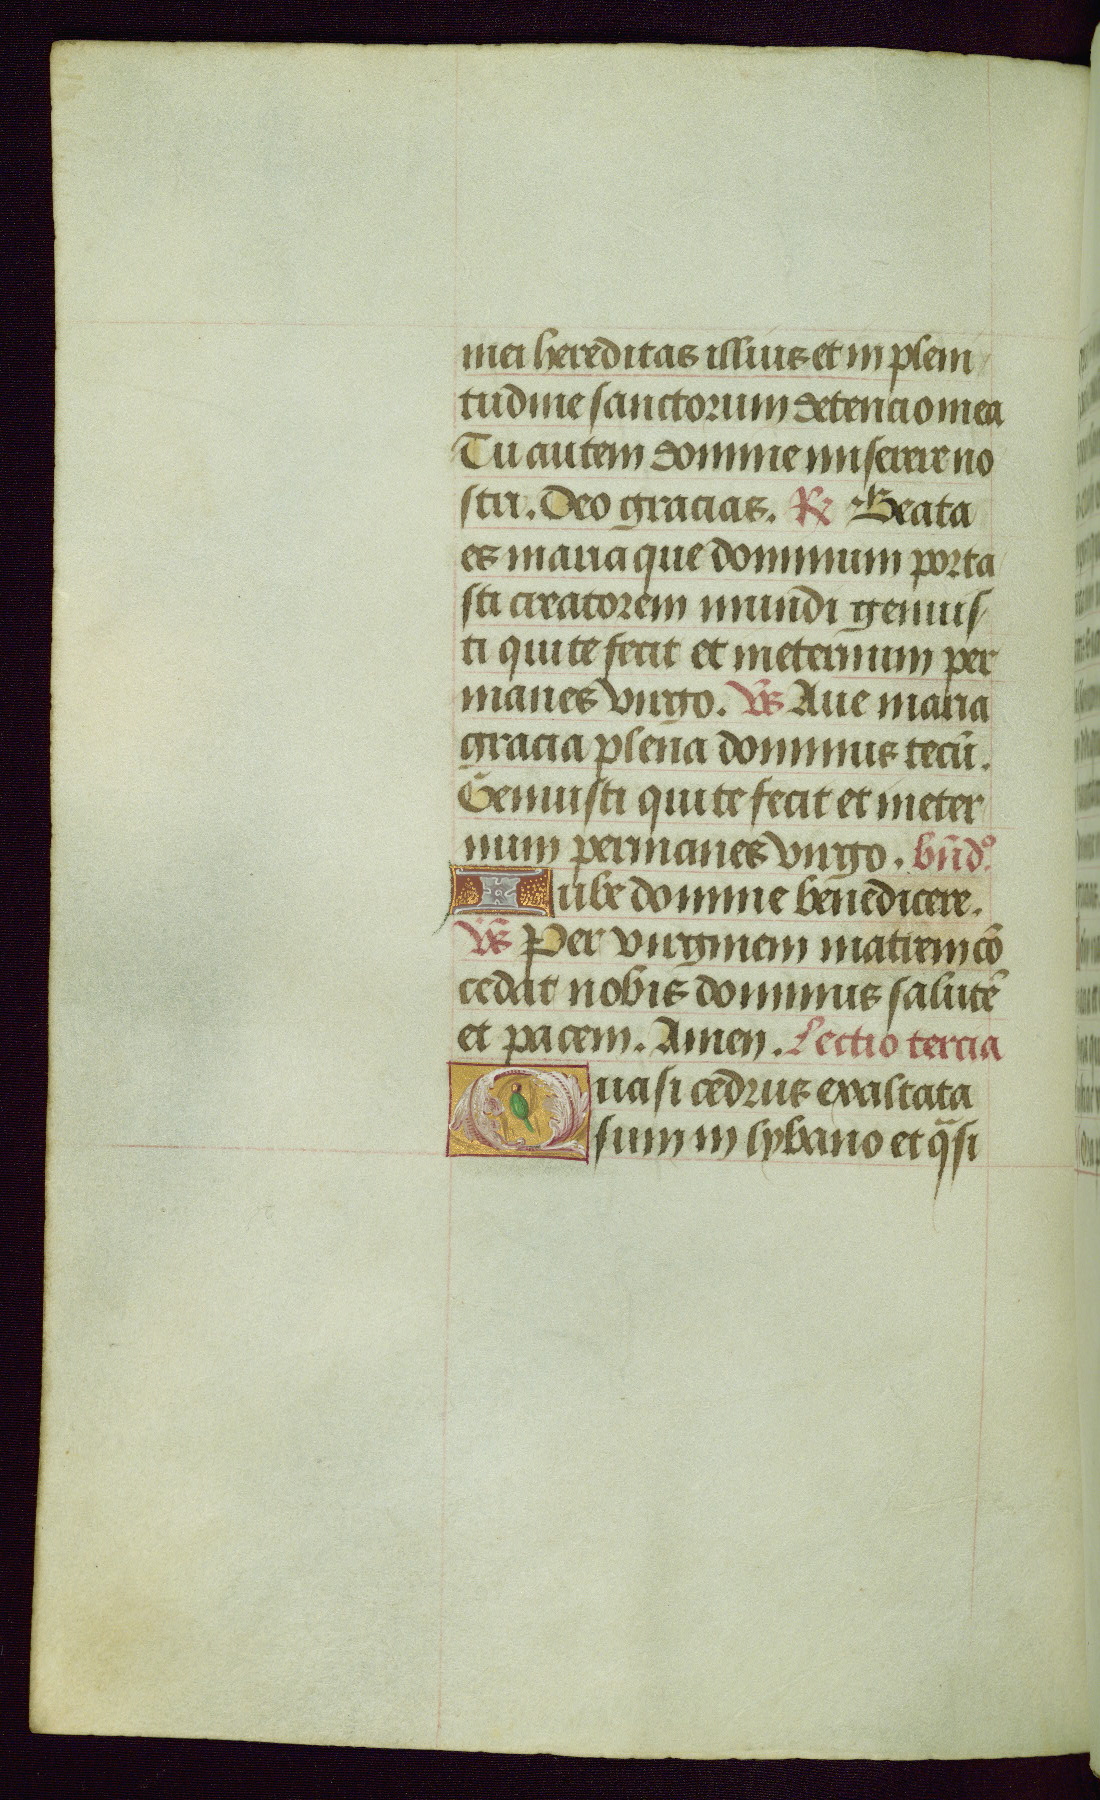 mei hereditas illius et in pleni
tudine sanctorum detencio mea
Tu autem domine miserere no
stri. Deo gracias. R Beata
es maria que dominum porta
sti creatorem mundi genuis
ti qui te fecit et ineternum per
manes virgo. Vs Aue maria
gracia plena dominus tecū.
Genuisti qui te fecit et ineter
num permanes virgo. bn̄d°.
Iube domine benedicere.
Vs Per virginem matrem cō
cedat nobis dominus salutē
et pacem. Amen. Lectio tercia
Quasi cedrus exaltata
sum in lybano et q̄si